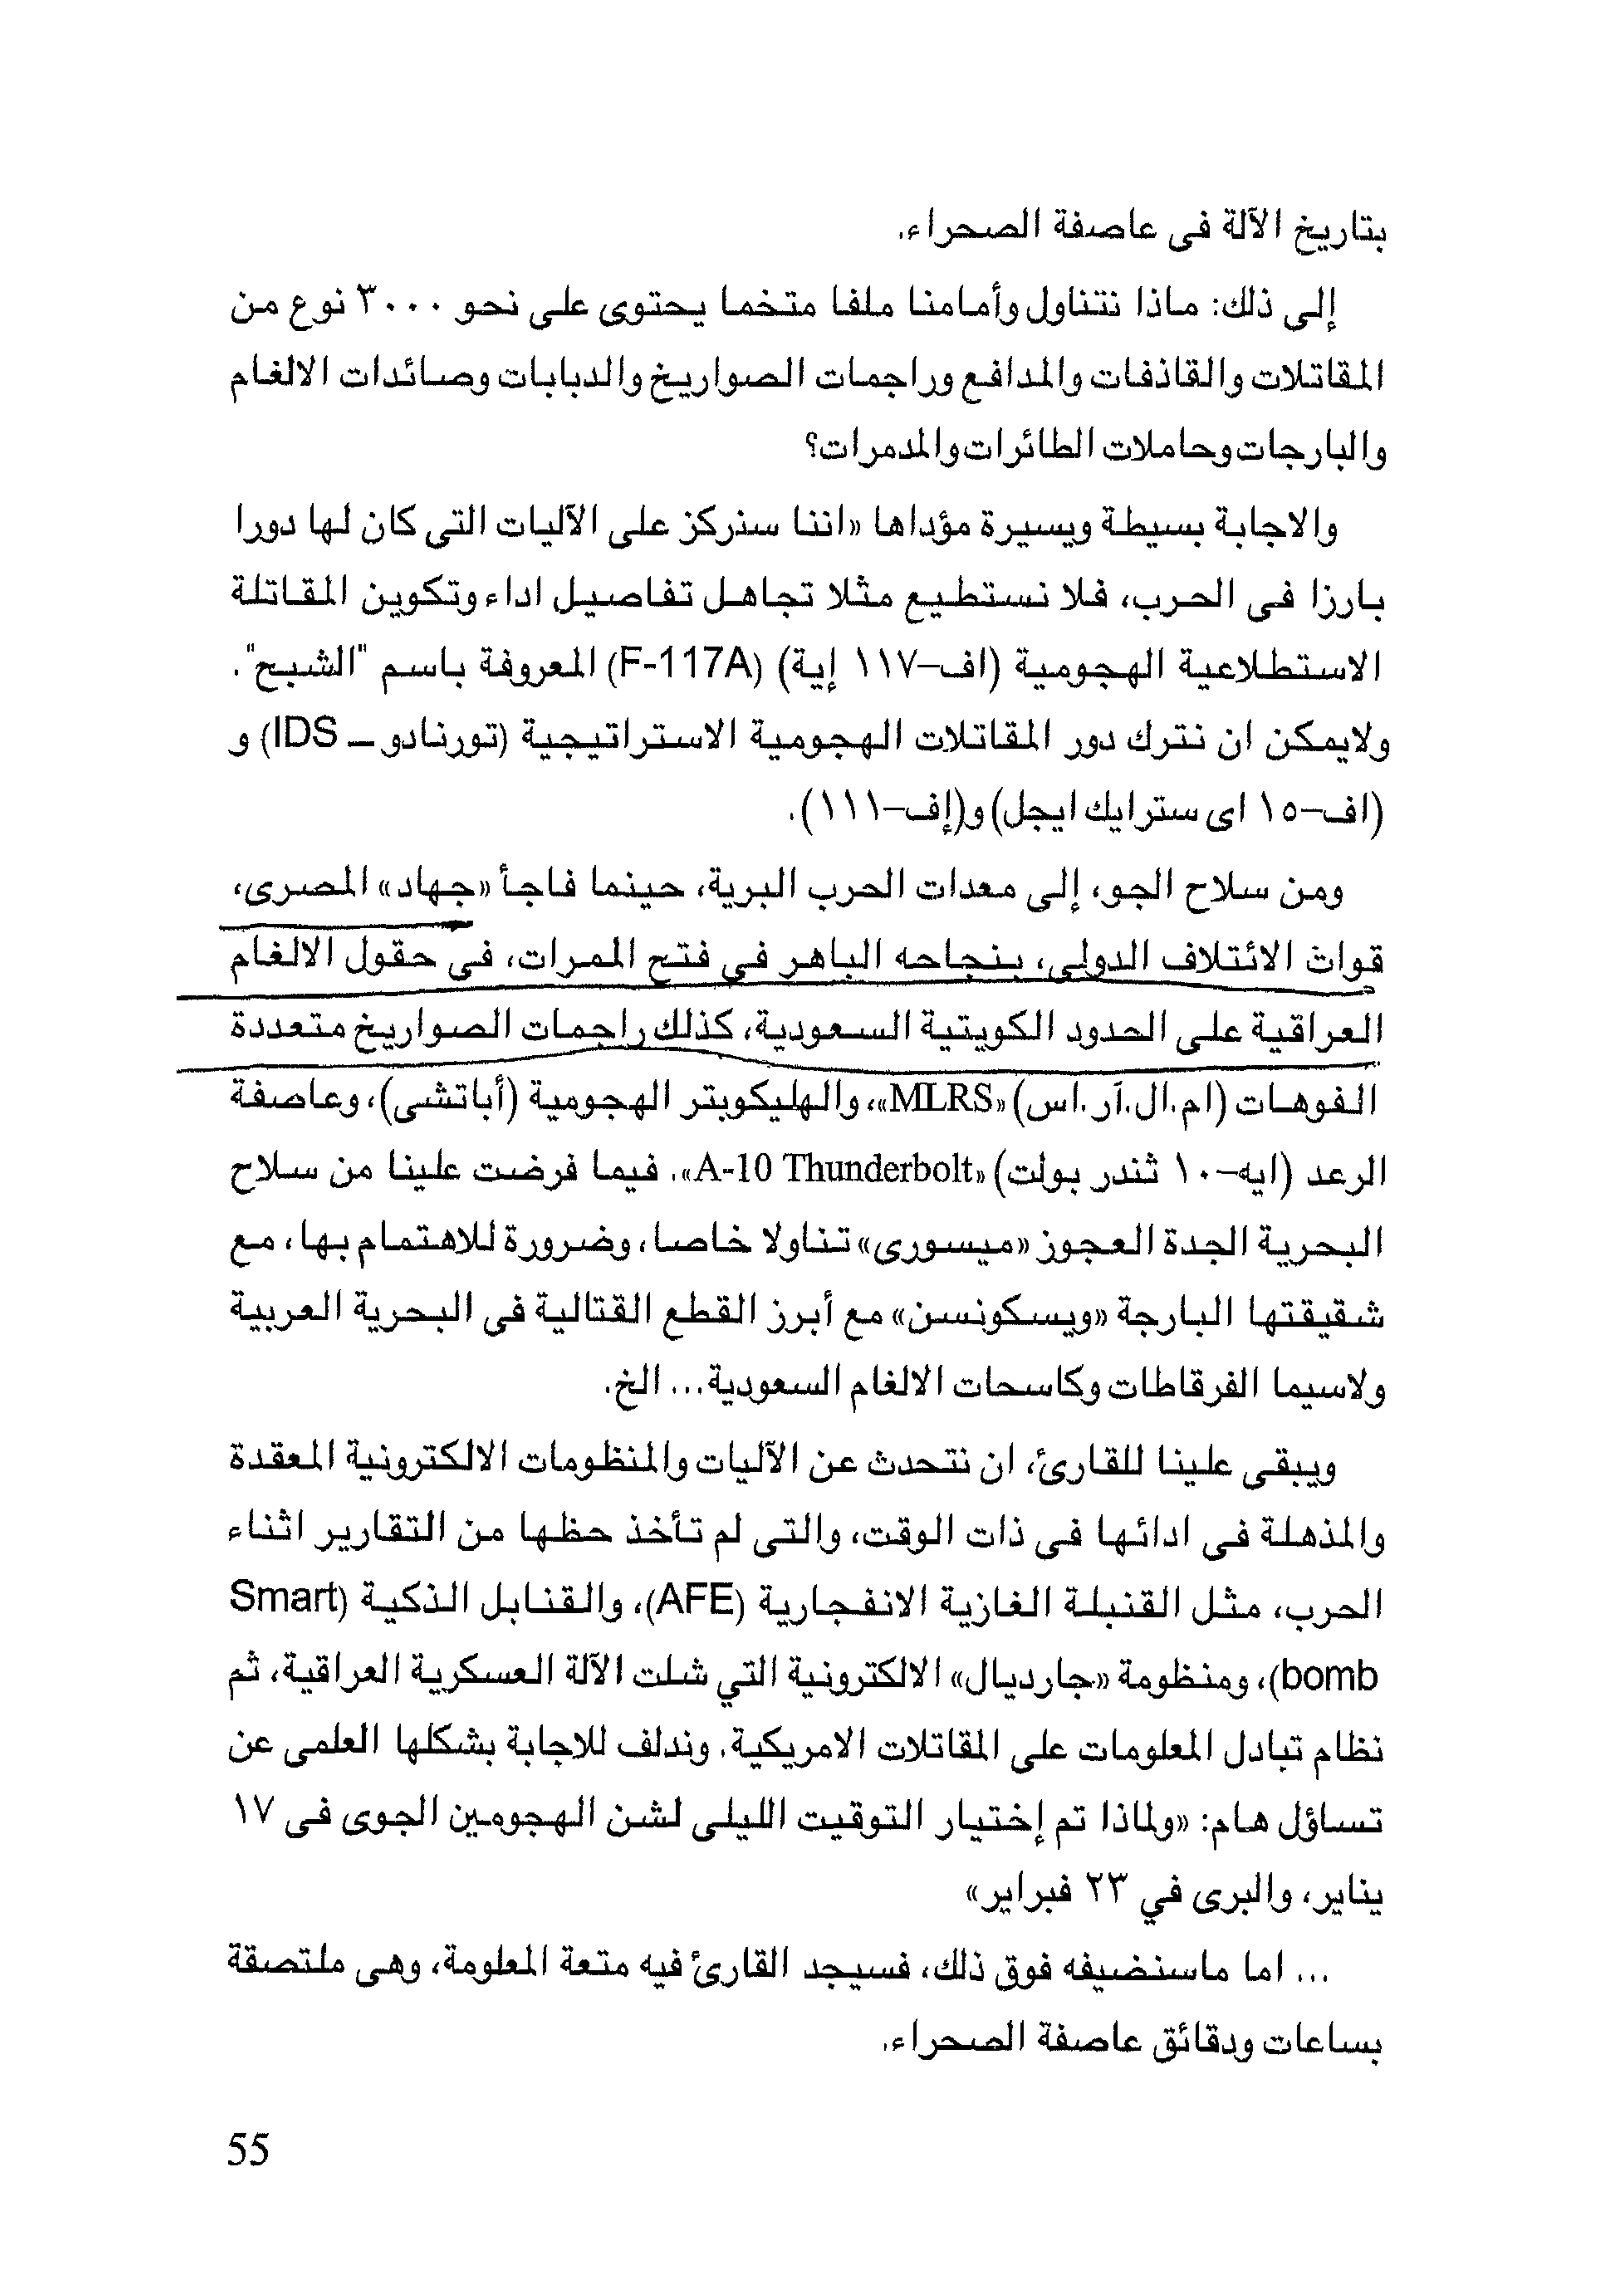 بتاريخ الآلة فى عاصفة الصحراء.
إلى ذلك: ماذا نتناول وأمامنا ملفا متخما يحتوى على نحو ٣٠٠٠ نوع من
المقاتلات والقاذفات والمدافع وراجمات الصواريخ والدبابات وصائدات الالغام
والبارجات وحاملات الطائرات والمدمرات؟
والاجابة بسيطة ويسيرة مؤداها «اننا سنركز على الآليات التى كان لها دورا
بارزا فى الحرب، فلا نستطيع مثلا تجاهل تفاصيل اداء وتكوين المقاتلة
الاستطلاعية الهجومية (اف-١١٧ إية) (F-117A) المعروفة باسم "الشبح".
ولايمكن ان نترك دور المقاتلات الهجومية الاستراتيجية (تورنادو – IDS) و
(اف-١٥ اى سترايك ايجل) و(إف-١١١).
ومن سلاح الجو، إلى معدات الحرب البرية، حينما فاجأ «جهاد» المصرى،
قوات الائتلاف الدولى، بنجاحه الباهر فى فتح الممرات، فى حقول الالغام
العراقية على الحدود الكويتية السعودية، كذلك راجمات الصواريخ متعددة
الفوهات (ام.ال.آر.اس) «MLRS»، والهليكوبتر الهجومية (أباتشى)، وعاصفة
الرعد (ايه-١٠ ثندر بولت) «A-10 Thunderbolt». فيما فرضت علينا من سلاح
البحرية الجدة العجوز «ميسورى» تناولا خاصا، وضرورة للاهتمام بها، مع
شقيقتها البارجة «ويسكونسن» مع أبرز القطع القتالية فى البحرية العربية
ولاسيما الفرقاطات وكاسحات الالغام السعودية... الخ.
ويبقى علينا للقارئ، ان نتحدث عن الآليات والمنظومات الالكترونية المعقدة
والمذهلة فى ادائها فى ذات الوقت، والتى لم تأخذ حظها من التقارير اثناء
الحرب، مثل القنبلة الغازية الانفجارية (AFE)، والقنابل الذكية (Smart
bomb)، ومنظومة «جارديال» الالكترونية التي شلت الآلة العسكرية العراقية، ثم
نظام تبادل المعلومات على المقاتلات الامريكية. وندلف للاجابة بشكلها العلمى عن
تساؤل هام: «ولماذا تم إختيار التوقيت الليلى لشن الهجومين الجوى فى ١٧
يناير، والبرى في ٢٣ فبراير»
... اما ماسنضيفه فوق ذلك، فسيجد القارئ فيه متعة المعلومة، وهى ملتصقة
بساعات ودقائق عاصفة الصحراء.
55